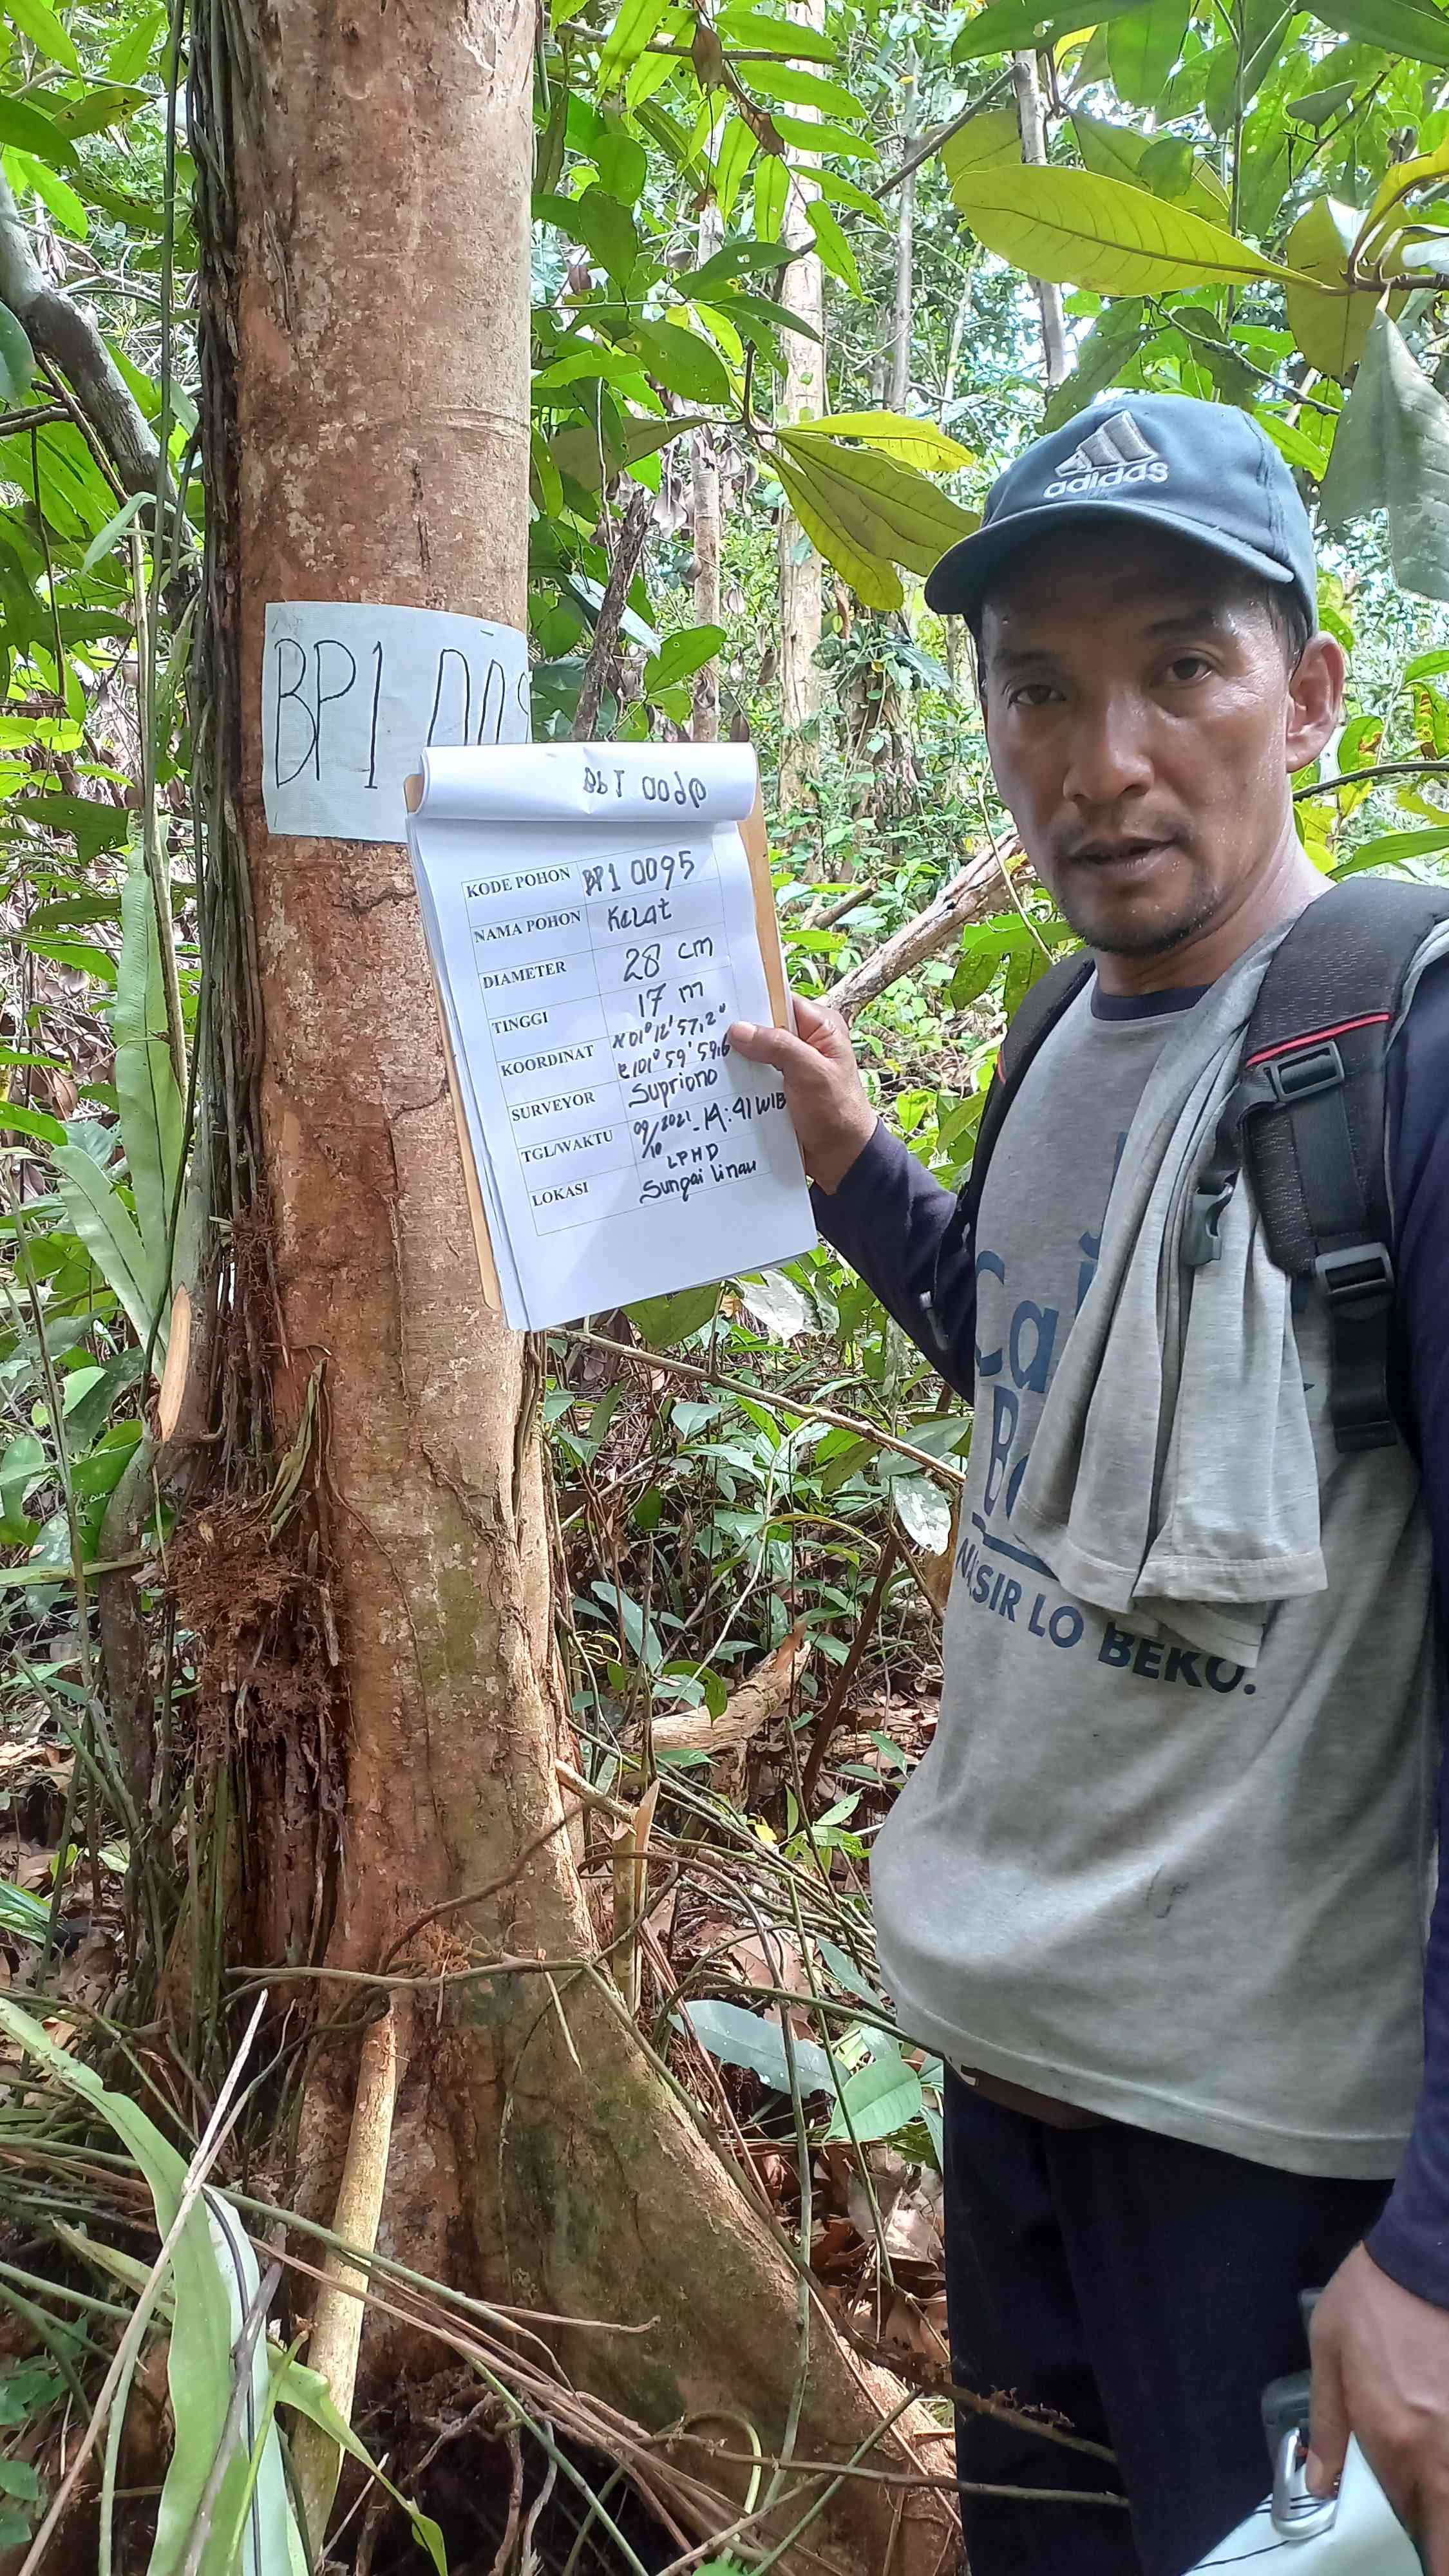 adidas
BP1 009
BP1 0096
KODE POHON BP1 0095
NAMA POHON Kelat
DIAMETER 28 cm
TINGGI 17 m
KOORDINAT N 01° 12' 57,2"
E 101° 59' 59,6
SURVEYOR Supriono
TGL/WAKTU 09/10 2021 - 14:41 WIB
LOKASI LPHD
Sungai linau
Ca
B
NASIR LO BEKO.